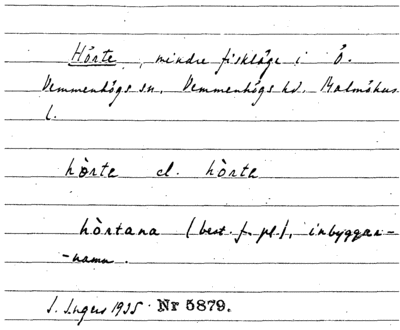 Hörte, mindre fiskläge i Ö.
Vemmenhögs sn. Vemmenhögs hd. Malmöhus
l.
hòrte el. hòrte
hòrtana (best. f. pl.), inbyggar-
-namn.
I. Ingers 1935. Nr 5879.